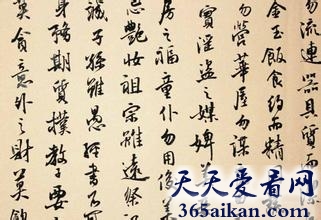 勿流連器具質而潔
金玉飯食約而精
勿營華屋勿謀
實淫盜之媒婢美
房之福童仆勿用俊美
忌艷妝祖宗雖遠祭祀
誠子孫雖愚經書不可
身務期質樸教子要
莫貪意外之財莫飲
天天爱看网
365aikan.com